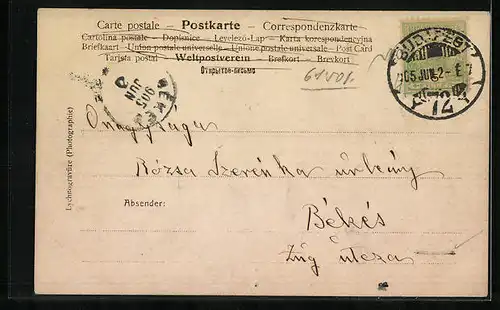 Carte postale — Postkarte — Correspondenzkarte
Cartolina postale — Dopisnice — Levelező-Lap — Karta korespondencyjna
Briefkaart — Union postale universelle — Unione postale universale — Post Card
Tarjeta postal — Weltpostverein — Brefkort — Brevkort
Открытое-письмо
BUDAPEST
905 JUL. 2
72
BÉKÉS
905
JUN
Lychnogravüre (Photographie)
Rózsa Szerénka úrleány
Absender:
Békés
Zúg utcza